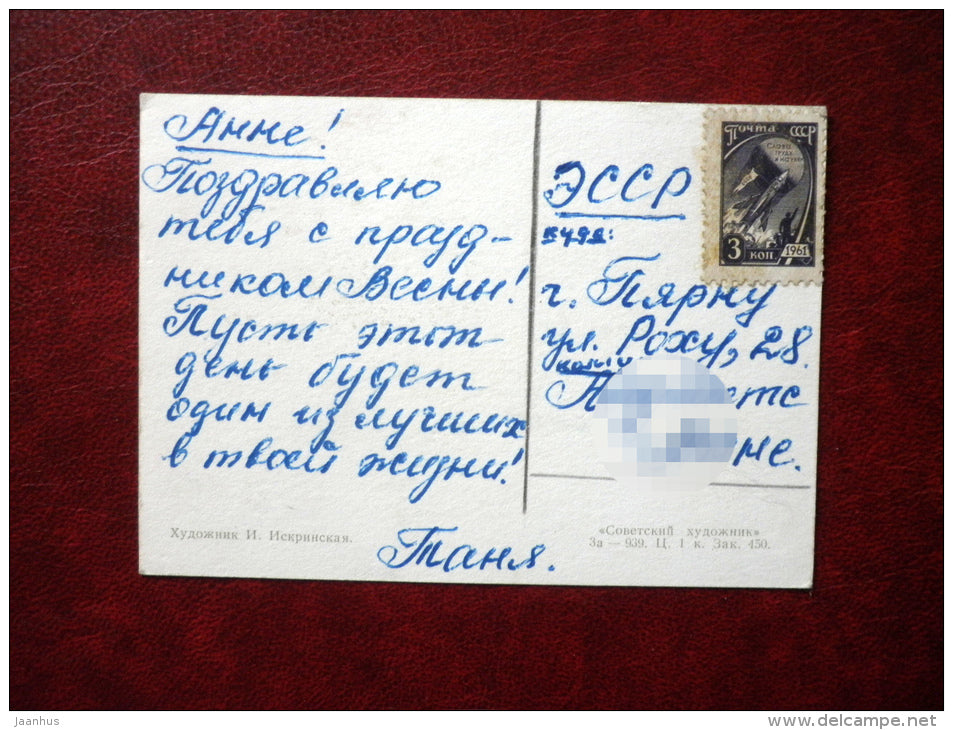 Анне!
Поздравляю
тебя с празд-
ником Весны!
Пусть этот
день будет
один из лучших
в твоей жизни!
Таня.
Художник И. Искринская.
Почта СССР
СЛАВА
ТРУДА
И НАУКИ
3 КОП. 1961
ЭССР
куда:
г. Пярну
ул. Роху, 28.
кому
нне.
«Советский художник»
За — 939. Ц. 1 к. Зак. 450.
jaanhus
www.delcampe.net